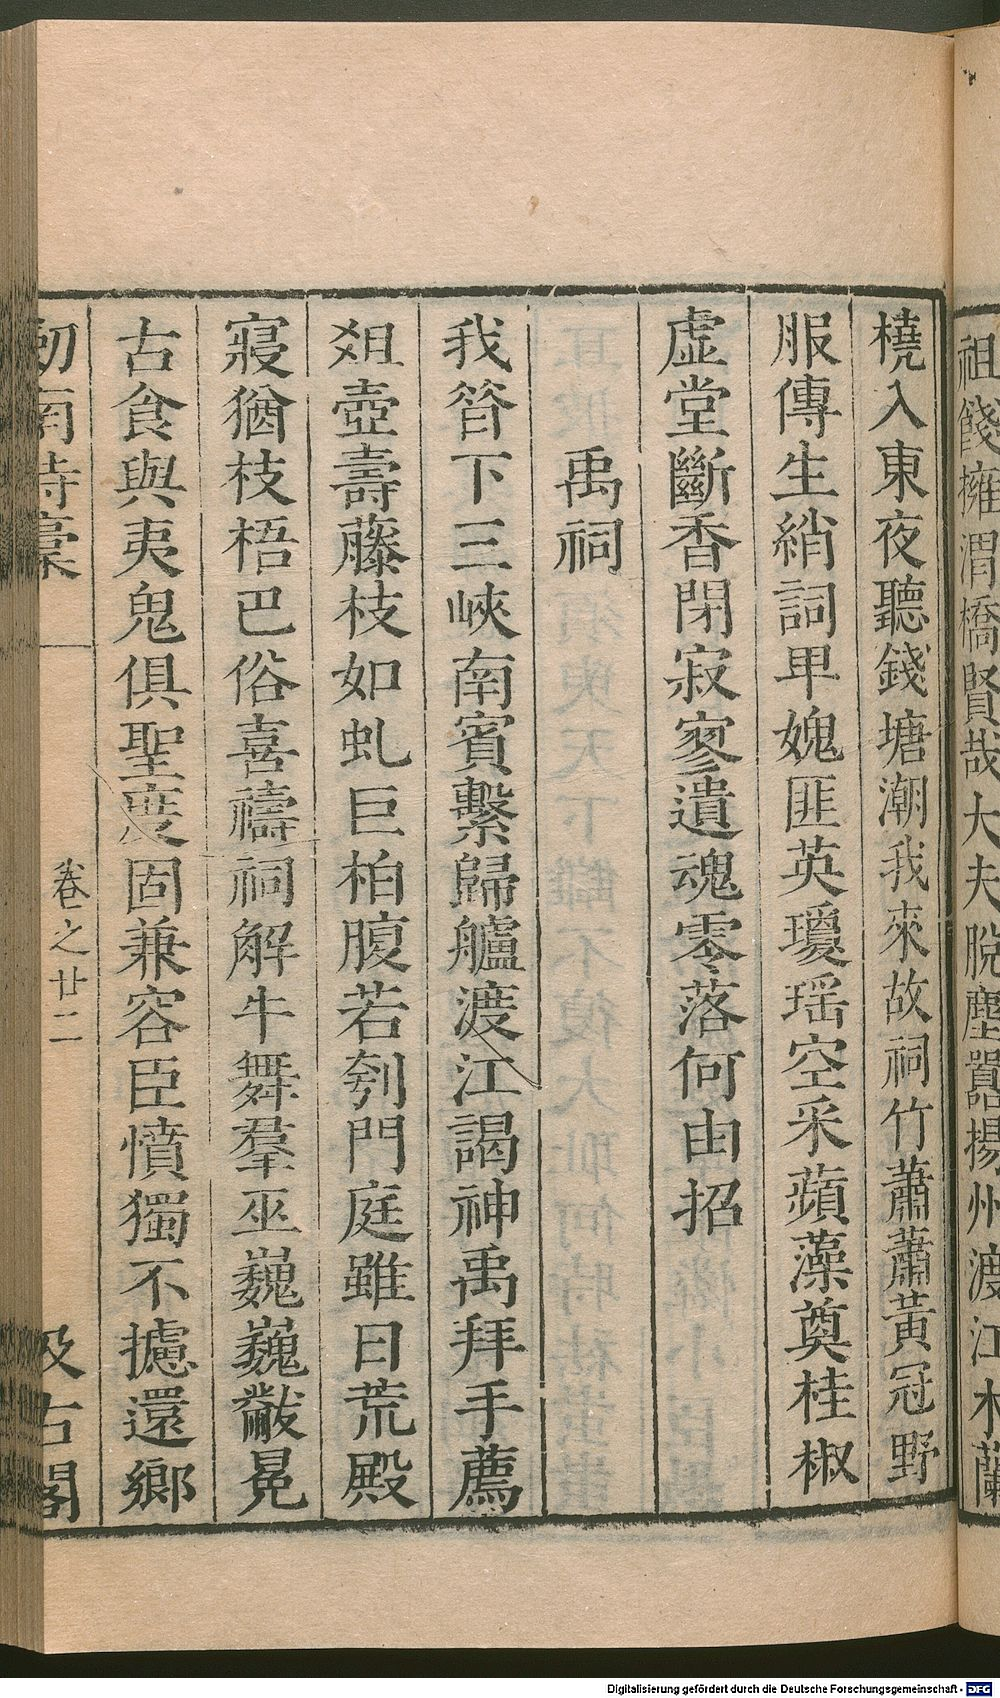 祖餞擁渭橋賢哉大夫脫塵囂揚州渡江木蘭
橈入東夜聽錢塘潮我來故祠竹蕭蕭黃冠野
服傳生綃詞卑媿匪英瓊瑤空采蘋藻奠桂椒
虛堂斷香閉寂寥遺魂零落何由招
禹祠
我昝下三峽南賓繫歸艫渡江謁神禹拜手薦
爼壺壽藤枝如虬巨柏腹若刳門庭雖日荒殿
寢猶枝梧巴俗喜禱祠解牛舞羣巫巍巍黻冕
古食與夷鬼俱聖度固兼容臣憤獨不攄還鄉
劒南詩稾
卷之廿二
汲古閣
Digitalisierung gefördert durch die Deutsche Forschungsgemeinschaft - DFG